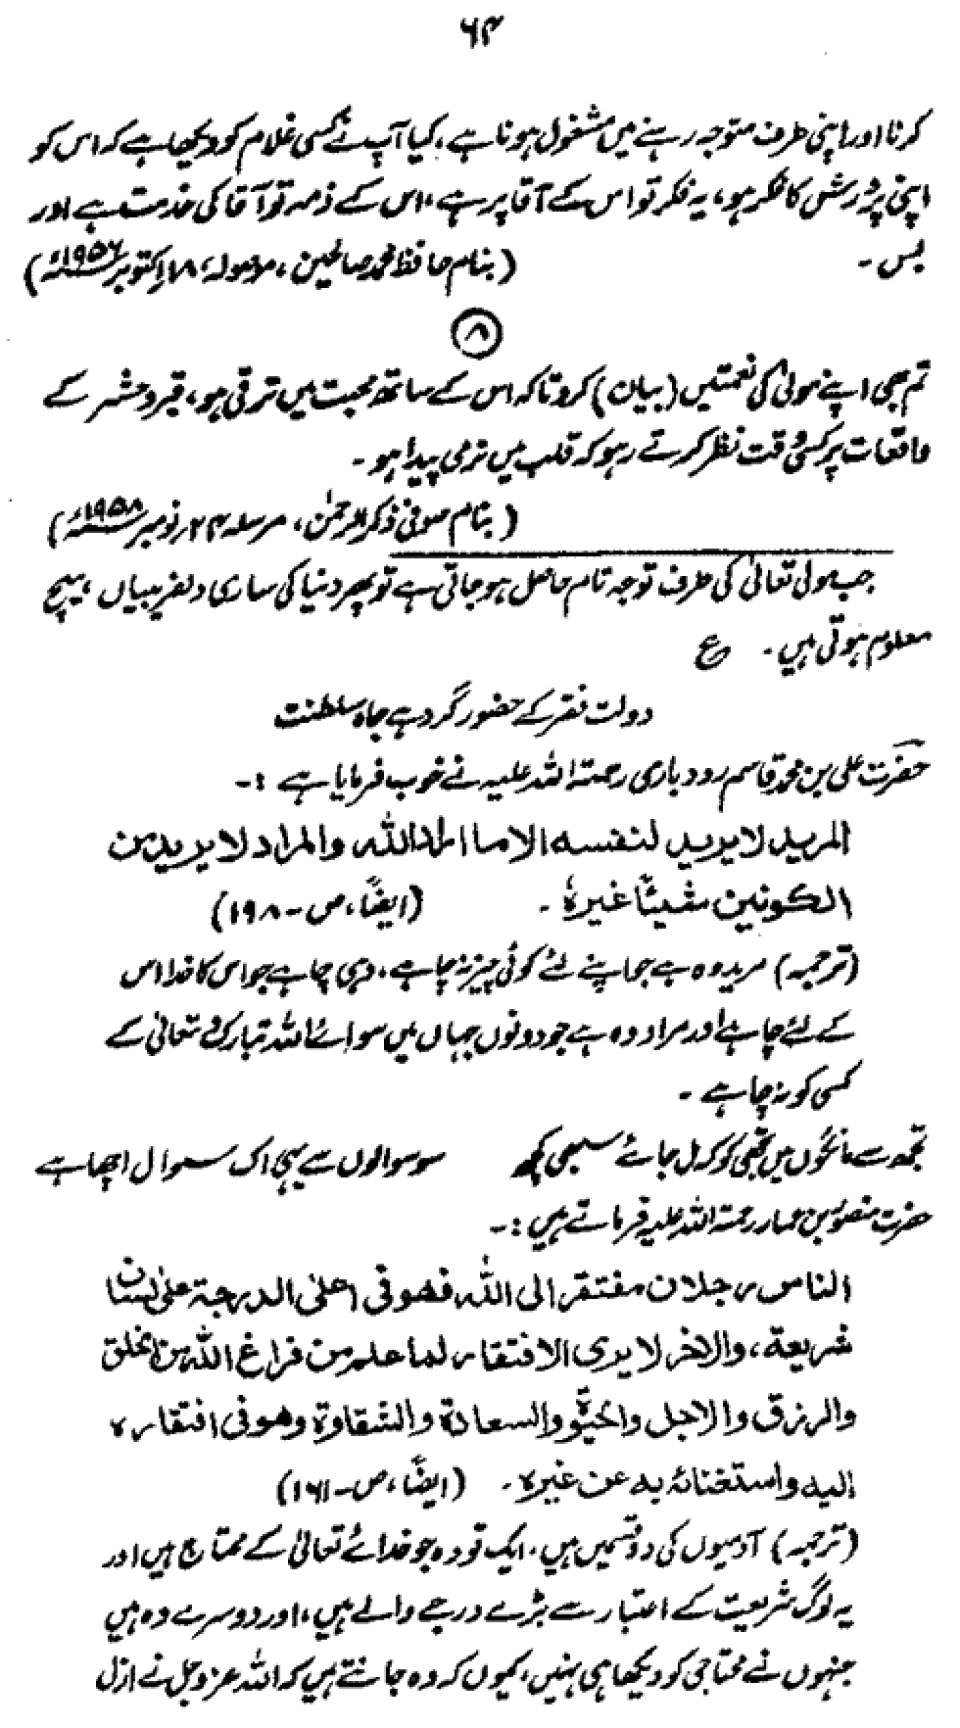 ۶۴
کرنا اور اپنی طرف متوجہ رہنے میں مشغول ہونا ہے، کیا آپ نے کسی غلام کو دیکھا ہے کہ اس کو
اپنی پرورش کا فکر ہو، یہ فکر تو اس کے آقا پر ہے، اس کے ذمہ تو آقا کی خدمت ہے اور
بس۔ (بنام حافظ محمد صالحین، موصولہ، ۱۸ اکتوبر ۱۹۵۶ء)
۸
تم بھی اپنے مولیٰ کی نعمتیں (بیان) کرو تاکہ اس کے ساتھ محبت میں ترقی ہو، قبر و حشر کے
واقعات پر کسی وقت نظر کرتے رہو کہ قلب میں نرمی پیدا ہو۔
(بنام صوفی ذکر الرحمٰن، مرسلہ ۲۴ نومبر ۱۹۵۸ء)
جب مولی تعالیٰ کی طرف توجہ تام حاصل ہو جاتی ہے تو پھر دنیا کی ساری دلفریبیاں، ہیچ
معلوم ہوتی ہیں۔ ع
دولت فقر کے حضور گرد ہے جاہ سلطنت
حضرت علی بن محمد قاسم رودباری رحمتہ اللہ علیہ نے خوب فرمایا ہے :۔
المرید لا یرید لنفسه الا ما اراد الله والمراد لا یرید من
الکونین شیئًا غیرہٗ۔ (ایضًا، ص۔۱۹۸)
(ترجمہ) مرید وہ ہے جو اپنے لئے کوئی چیز نہ چاہے، وہی چاہے جو اس کا خدا اس
کے لئے چاہے اور مراد وہ ہے جو دونوں جہاں میں سوائے اللہ تبارک و تعالیٰ کے
کسی کو نہ چاہے۔
تجھ سے مانگوں میں تجھی کو کہ مل جائے سبھی کچھ سو سوالوں سے یہی اک سوال اچھا ہے
حضرت منصور بن عمار رحمتہ اللہ علیہ فرماتے ہیں :۔
الناس رجلان مفتقر الی الله فهو فی اعلیٰ الدرجة علیٰ لسان
شریعة، والاخر لا یری الافتقار لما علم من فراغ الله من الخلق
والرزق والاجل والحیٰوة والسعادة والشقاوة وهو فی افتقاره
الیه واستغنائه به عن غیره۔ (ایضًا، ص۔۱۶۱)
(ترجمہ) آدمیوں کی دو قسمیں ہیں، ایک تو وہ جو خدائے تعالیٰ کے محتاج ہیں اور
یہ لوگ شریعت کے اعتبار سے بڑے درجے والے ہیں، اور دوسرے وہ ہیں
جنہوں نے محتاجی کو دیکھا ہی نہیں، کیوں کہ وہ جانتے ہیں کہ اللہ عزوجل نے ازل